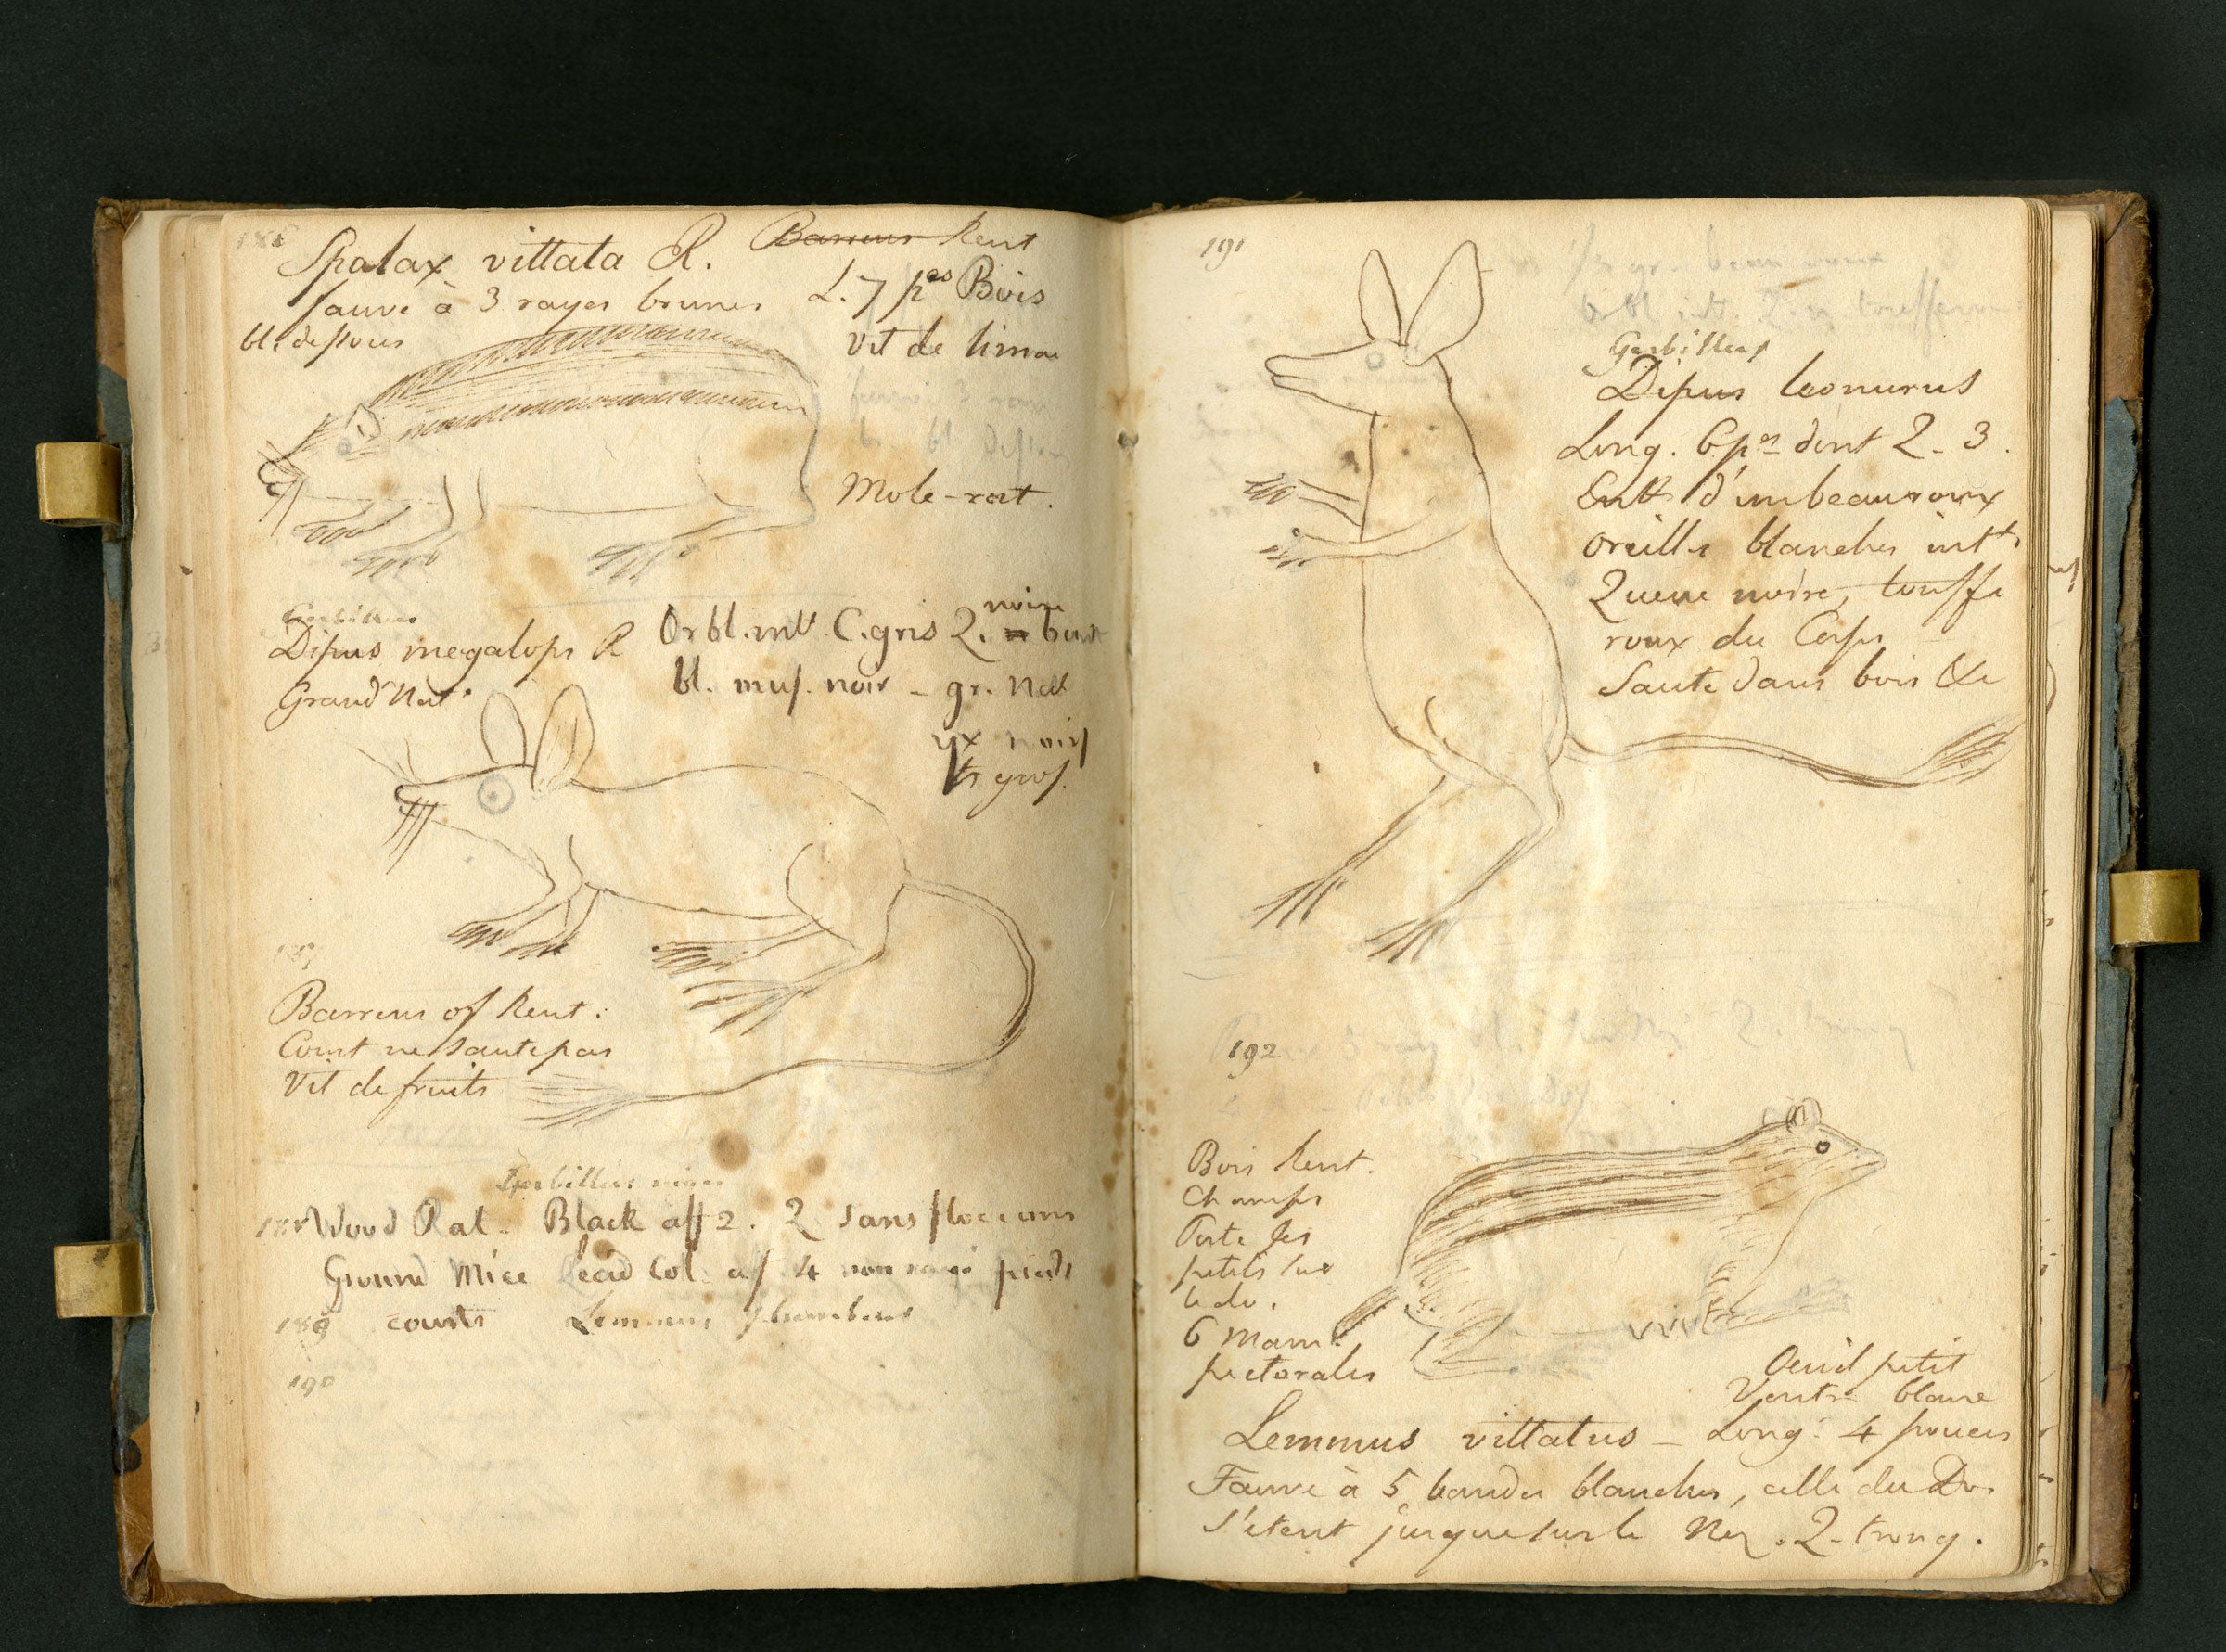 Spalax vittata R. Barrens Kent
fauve à 3 rayes brunes L. 7 pces Bois
bl. dessous
Vit de limac
Mole-rat.
Gerbillus
Dipus megalops R Or bl. intt. C. gris Q. noire
bout
Grand Nat. bl. mus. noir - gr. Nat
yx noirs
ts gros.
187
Barrens of Kent:
Court ne saute pas
Vit de fruits
Gerbillus niger
188 Wood Rat - Black aff 2. Q sans floccons
Ground Mice Lead Col. af 4 non rayé pieds
189 courts Lemmus plumbeus
190
191
Gerbillus
Dipus leonurus
Long. 6 pes dont Q - 3.
Entt d'un beau roux
oreilles blanches intt.
Queue noire, touffe
roux du Corps
Saute dans bois &c
192
Bois Kent.
Champs
Porte ses
petits sur
le do.
6 Mam.
pectorales
Oeuil petit
Ventre blanc
Lemmus vittatus - Long. 4 pouces
Fauve à 5 bandes blanches, celle du Dos
s'etent jusque sur le Nez. Q - tronq.